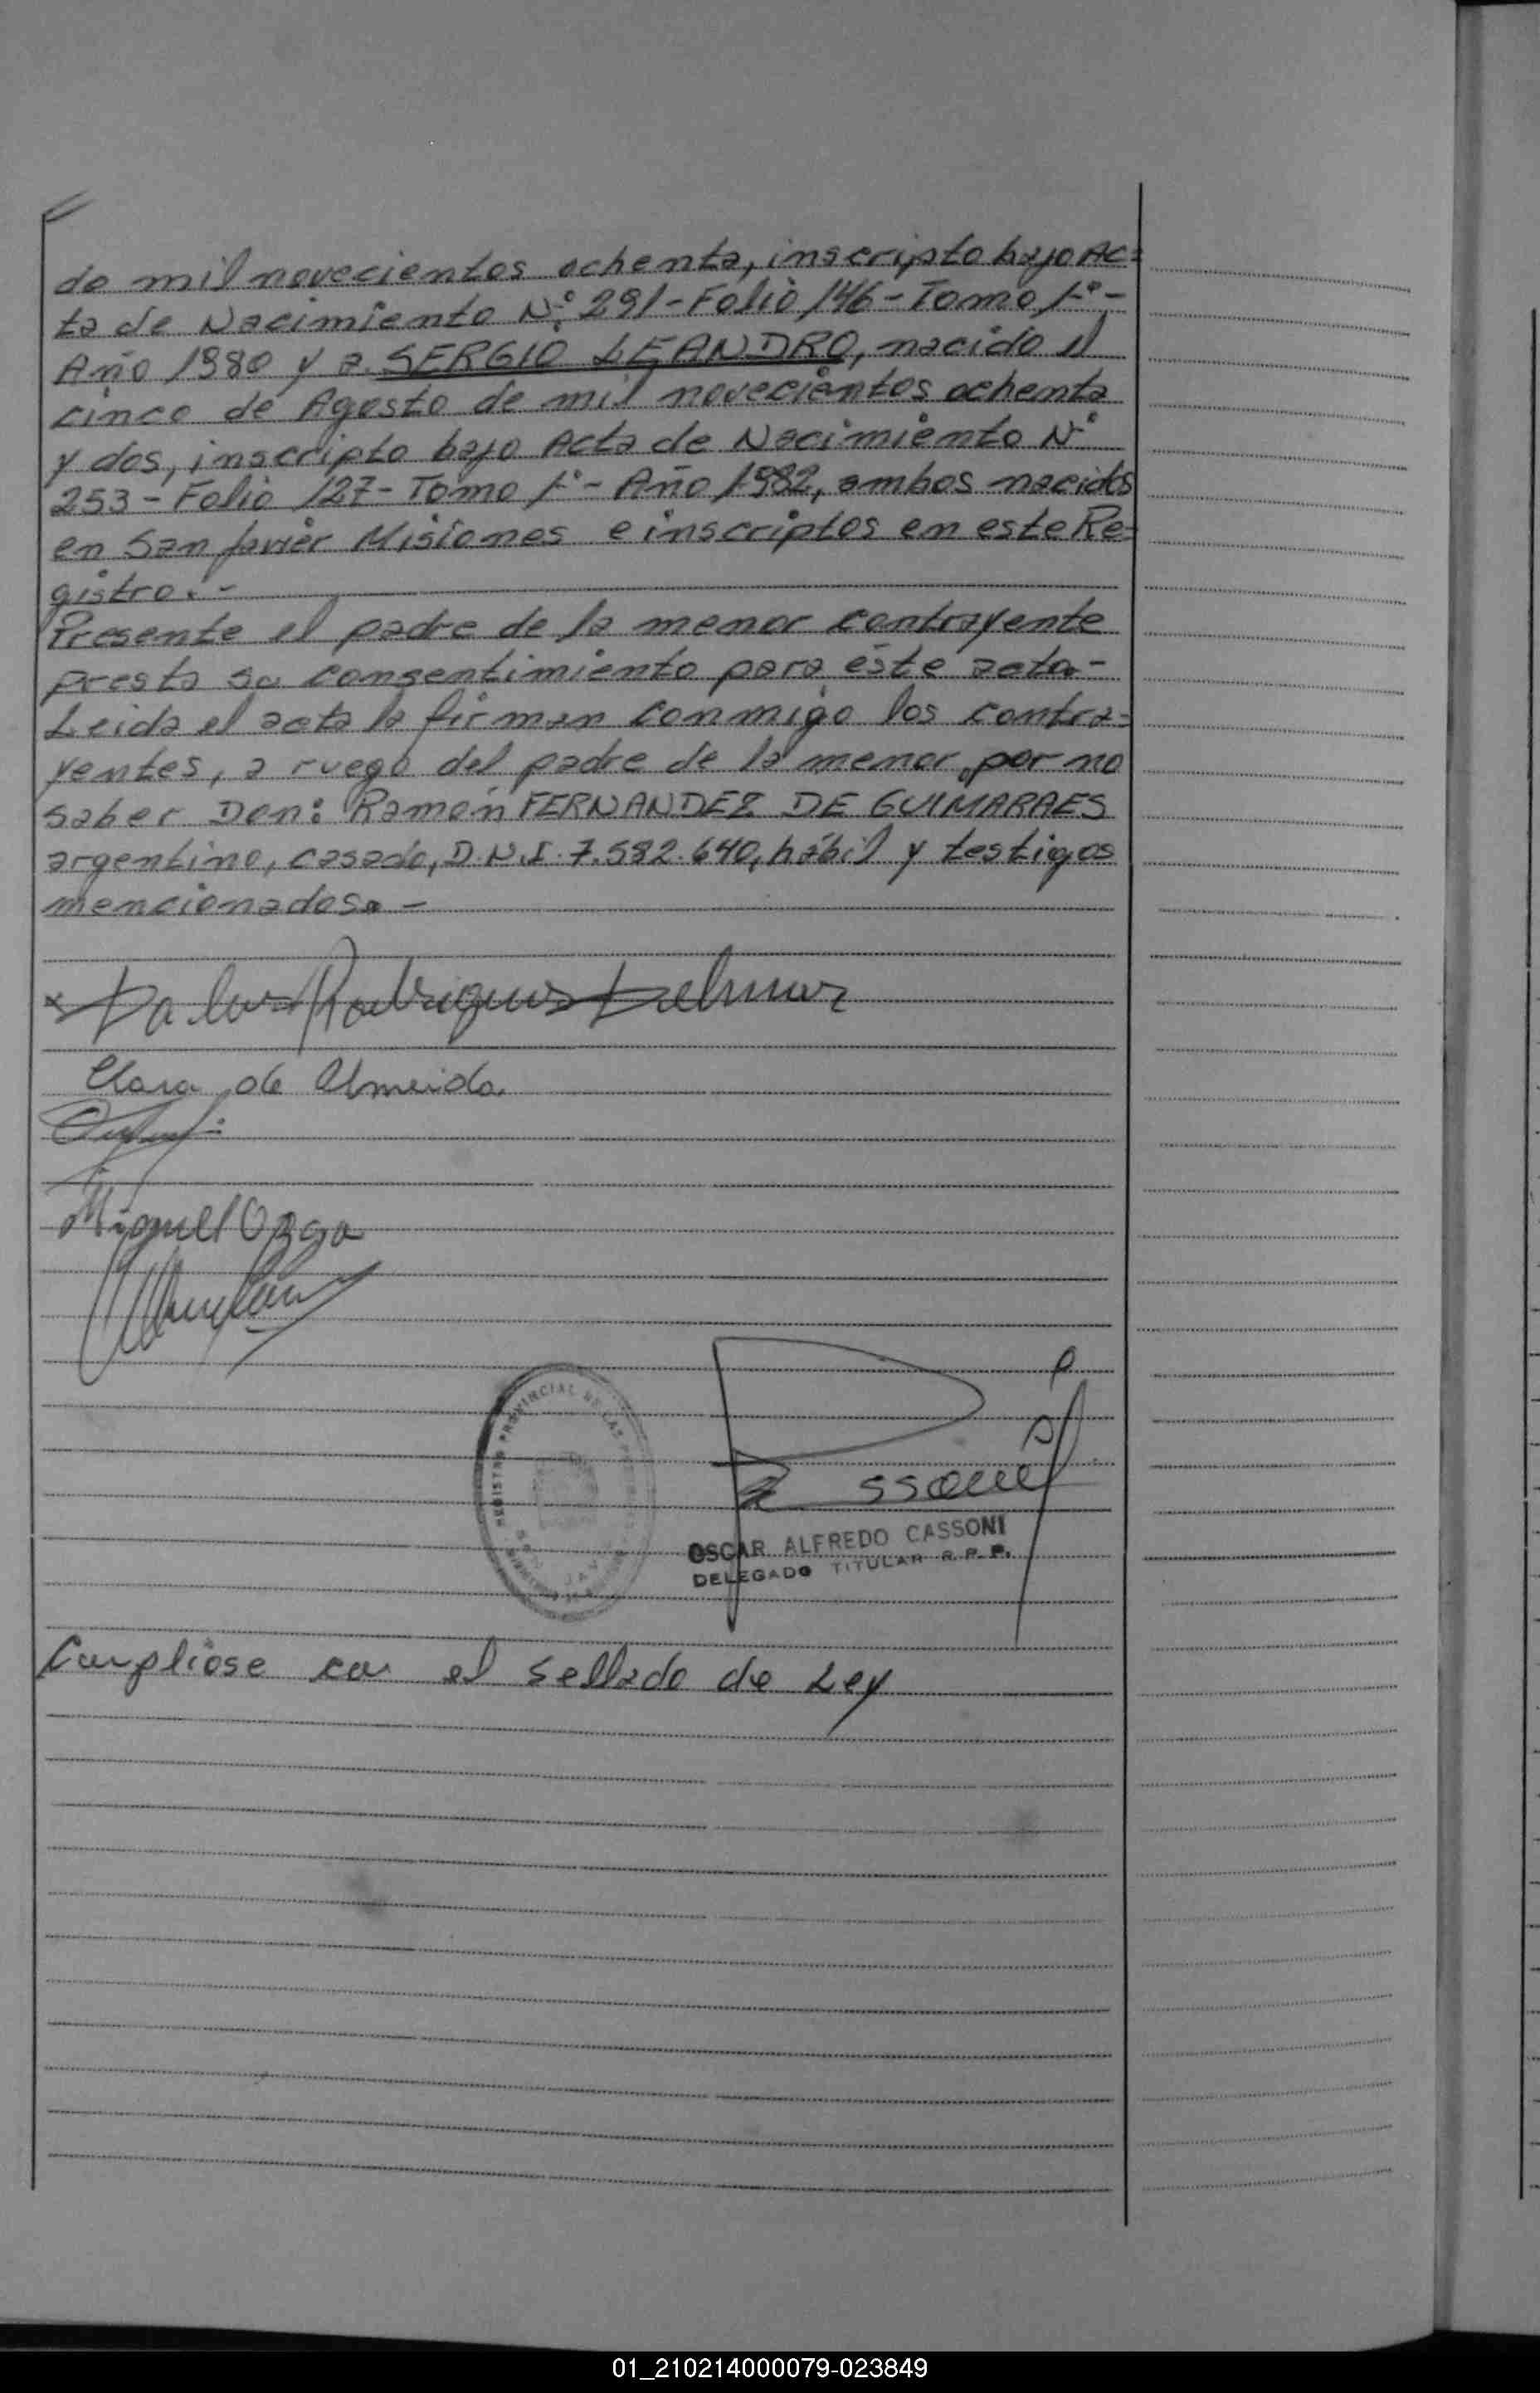 de mil novecientos ochenta, inscripto bajo Ac=
ta de Nacimiento N° 291 - Folio 146 - Tomo 1° -
Año 1980 y a SERGIO LEANDRO, nacido el
cinco de Agosto de mil novecientos ochenta
y dos, inscripto bajo Acta de Nacimiento N°
253 - Folio 127 - Tomo 1° - Año 1982, ambos nacidos
en San Javier Misiones e inscriptos en este Re=
gistro. -
Presente el padre de la menor contrayente
presta su consentimiento para éste acto -
Leida el acta la firman conmigo los contra=
yentes, a ruego del padre de la menor, por no
saber Don: Ramón FERNANDEZ DE GUIMARAES
argentino, casado, D.N.I. 7.582.640, hábil y testigos
mencionados. -
Clara de Almeida
Miguel
REGISTRO PROVINCIAL DE LAS
OSCAR ALFREDO CASSONI
DELEGADO TITULAR R.P.P.
Cumpliose con el sellado de Ley
01_210214000079-023849